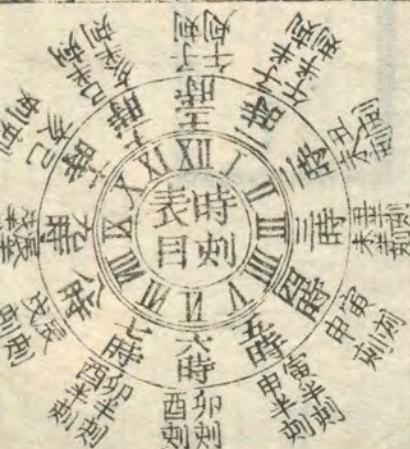 時刻
表目
XII
I
II
III
IIII
V
VI
VII
VIII
IX
X
XI
十二時
一時
二時
三時
四時
五時
六時
七時
八時
九時
十時
十一時
子刻
午刻
子半刻
午半刻
丑刻
未刻
丑半刻
未半刻
寅刻
申刻
寅半刻
申半刻
卯刻
酉刻
卯半刻
酉半刻
辰刻
戌刻
辰半刻
戌半刻
巳刻
亥刻
巳半刻
亥半刻